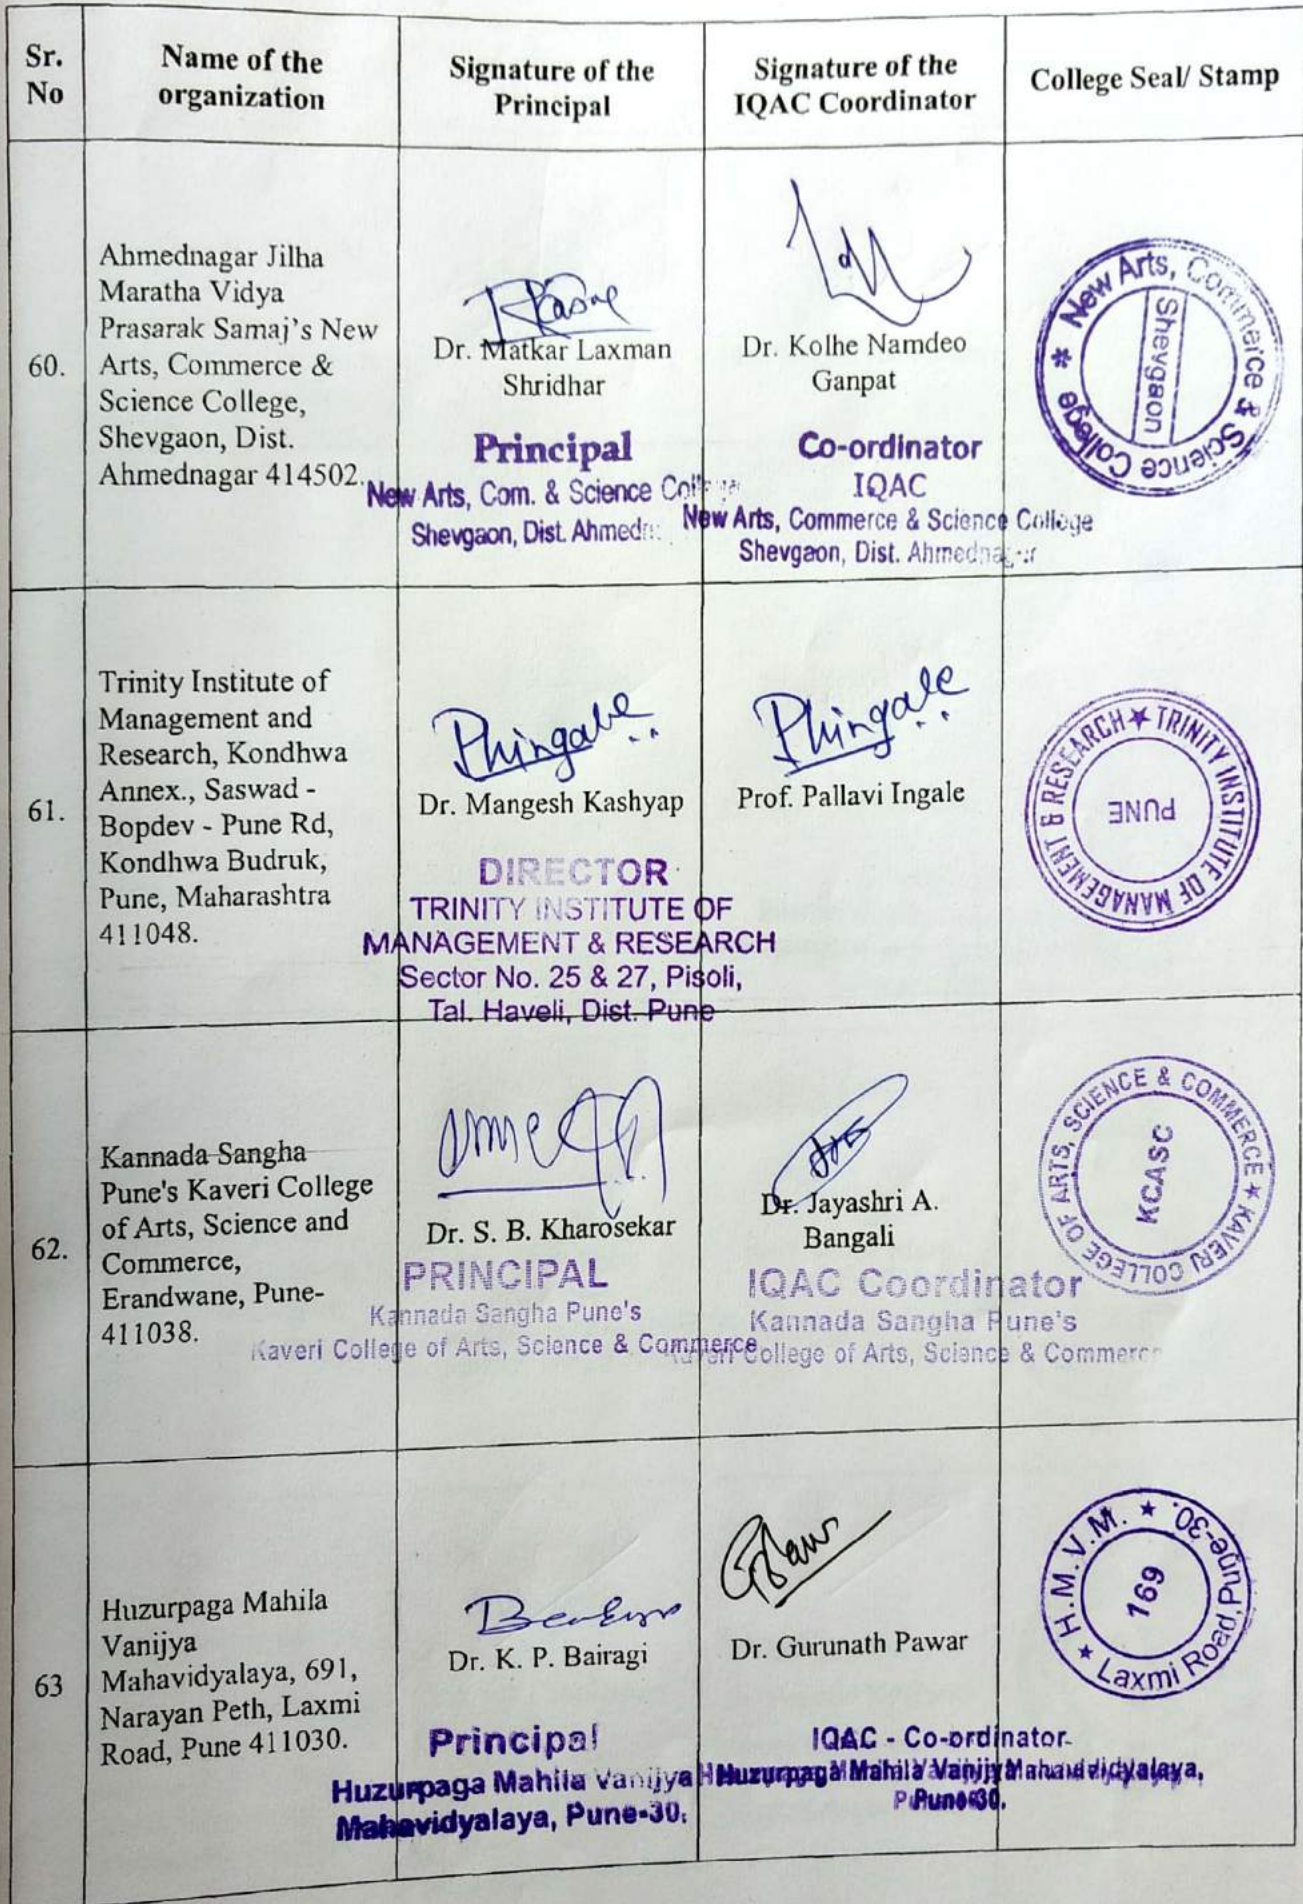 Sr.
No
Name of the
organization
Signature of the
Principal
Signature of the
IQAC Coordinator
College Seal/ Stamp
60.
Ahmednagar Jilha
Maratha Vidya
Prasarak Samaj's New
Arts, Commerce &
Science College,
Shevgaon, Dist.
Ahmednagar 414502.
Dr. Matkar Laxman
Shridhar
Principal
New Arts, Com. & Science
Shevgaon, Dist.
Dr. Kolhe Namdeo
Ganpat
Co-ordinator
IQAC
New Arts, Commerce & Science College
Shevgaon, Dist. Ahmednagar
* New Arts, Commerce & Science College
Shevgaon
61.
Trinity Institute of
Management and
Research, Kondhwa
Annex., Saswad -
Bopdev - Pune Rd,
Kondhwa Budruk,
Pune, Maharashtra
411048.
Phingale
Dr. Mangesh Kashyap
DIRECTOR
TRINITY INSTITUTE OF
MANAGEMENT & RESEARCH
Sector No. 25 & 27, Pisoli,
Tal. Haveli, Dist. Pune
Phingale
Prof. Pallavi Ingale
★ TRINITY INSTITUTE OF MANAGEMENT & RESEARCH
PUNE
62.
Kannada Sangha
Pune's Kaveri College
of Arts, Science and
Commerce,
Erandwane, Pune-
411038.
Dr. S. B. Kharosekar
PRINCIPAL
Kannada Sangha Pune's
Kaveri College of Arts, Science & Commerce
Dr. Jayashri A.
Bangali
IQAC Coordinator
Kannada Sangha Pune's
Kaveri College of Arts, Science & Commerce
★ KAVERI COLLEGE OF ARTS, SCIENCE & COMMERCE
KCASC
63
Huzurpaga Mahila
Vanijya
Mahavidyalaya, 691,
Narayan Peth, Laxmi
Road, Pune 411030.
Dr. K. P. Bairagi
Principal
Huzurpaga Mahila Vanijya
Mahavidyalaya, Pune-30.
Dr. Gurunath Pawar
IQAC - Co-ordinator
Huzurpaga Mahila Vanijya Mahavidyalaya,
Pune-30.
★ H.M.V.M. ★
Laxmi Road, Pune-30.
169